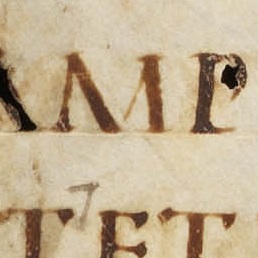 AMP
TET